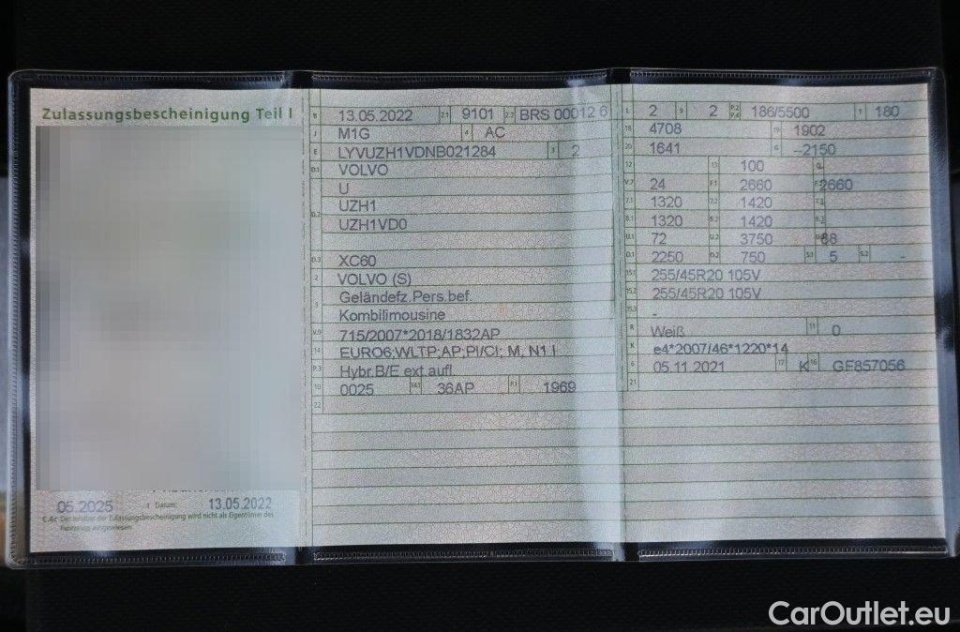 Zulassungsbescheinigung Teil I
05.2025 I Datum: 13.05.2022
C.4c Der Inhaber der Zulassungsbescheinigung wird nicht als Eigentümer des
Fahrzeugs ausgewiesen.
B 13.05.2022 2.1 9101 2.2 BRS 00012 6
J M1G 4 AC
E LYVUZH1VDNB021284 3 2
D.1 VOLVO
U
D.2 UZH1
UZH1VD0
D.3 XC60
2 VOLVO (S)
5 Geländefz.Pers.bef.
Kombilimousine
V.9 715/2007*2018/1832AP
14 EURO6;WLTP;AP;PI/CI; M, N1 I
P.3 Hybr.B/E ext.aufl
10 0025 14.1 36AP P.1 1969
22
L 2 9 2 P.2 P.4 186/5500 T 180
18 4708 19 1902
20 1641 G –2150
12 13 100 Q
V.7 24 F.1 2660 F.2 2660
7.1 1320 7.2 1420 7.3
8.1 1320 8.2 1420 8.3
U.1 72 U.2 3750 U.3 68
O.1 2250 O.2 750 S.1 5 S.2 -
15.1 255/45R20 105V
15.2 255/45R20 105V
15.3 -
R Weiß 11 0
K e4*2007/46*1220*14
6 05.11.2021 17 K 16 GF857056
21
CarOutlet.eu